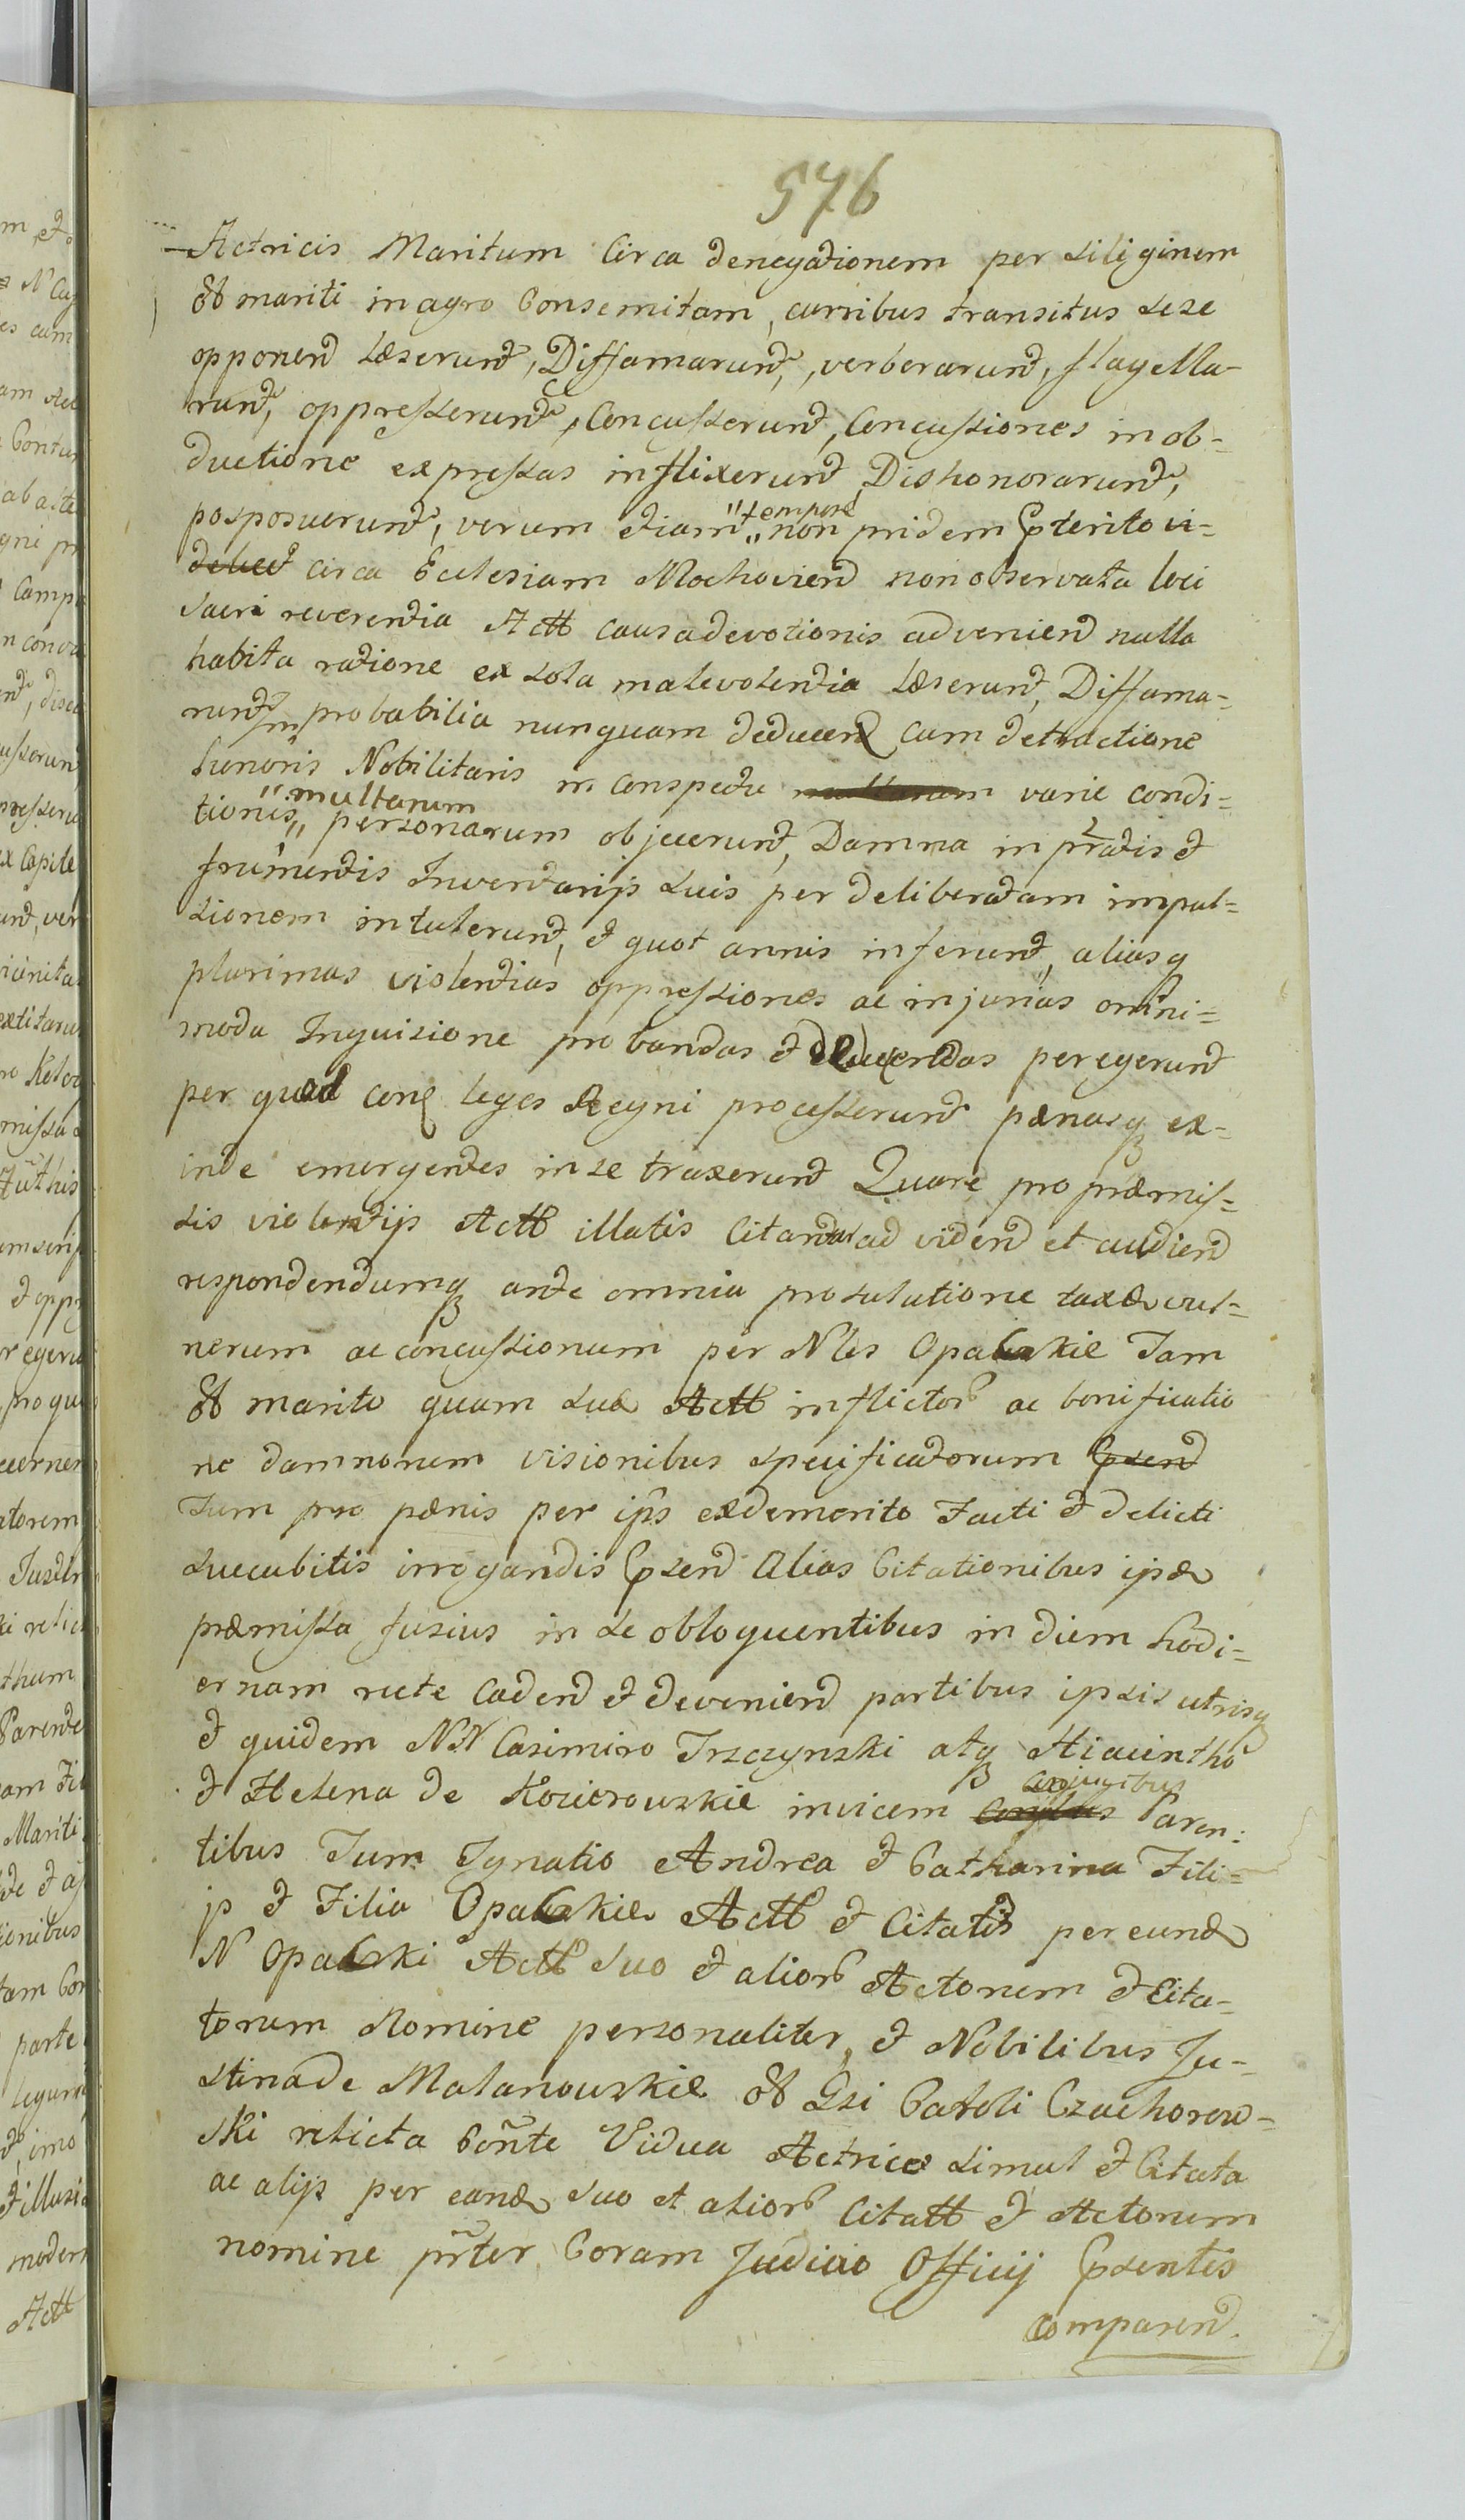 576
Actricis Maritum Circa denegationem per siliginem
Ol mariti in agro Consemitam, curribus transitus sese
opponend læserunt, Diffamarunt, verberarunt, flagella-
runt, oppresserunt, Concusserunt, Concussiones in ob=
ductione expressas inflixerunt, Dishonorarunt,
posposuerunt, verum etiam "tempore„ non pridem Pterito vi=
delicet circa Ecclesiam Mochoviend non observata loci
sacri reverentia Actt causa devotionis adveniend nulla
habita ratione ex sola malevolentia læserunt, Diffama-
runt, in probabilia nunquam deducend cum detractione
honoris Nobilitaris in conspectu multarum variæ condi=
tionis "multarum„ personarum objecerunt, Damna in pratis et
frumentis Inventarijs suis per deliberatam impul=
sionem intulerunt, et quot annis inferunt, aliasq
plurimas violentias oppressiones ac injurias omni=
moda Inquisione probandas et deducendas peregerunt
per quod conq leges Regni processerunt pænasq ex-
inde emergentes in se traxerunt Quare pro præmis-
sis violentijs Actt illatis Citantur ad vidend et audiend
respondendumq ante omnia pro solutione taxæ vul=
nerum ac concussionum per Nles Opalskie Tam
Ol marito quam suæ Actt inflictor ac bonificatio
ne damnorum visionibus specificatorum Psend
Tum pro pænis per ips ex demerito Facti et delicti
succubitis irrogandis Psend Alias Citationibus ipæ
præmissa fusius in se obloquentibus in diem hodi=
ernam recte Cadend et deveniend partibus ipsis utrisq
et quidem NN Casimiro Trszynski atq Hiacintho
et Helena de Kocierowskie invicem Conjbus conjugibus Paren:
tibus Tum Ignatio Andrea et Catharina Fili=
js et Filia Opalskie Actt et Citatis per eund
N Opalski Actt suo et alior Actorum et Cita-
torum Nomine personaliter, et Nobilibus Ju-
stina de Malanowskie Ol Gsi Caroli Czachorow-
ski relicta Conte Vidua Actrice simul et Citata
ac alijs per eand suo et alior Citatt et Actorum
nomine prter Coram Judicio Officij Psentis
Comparend.